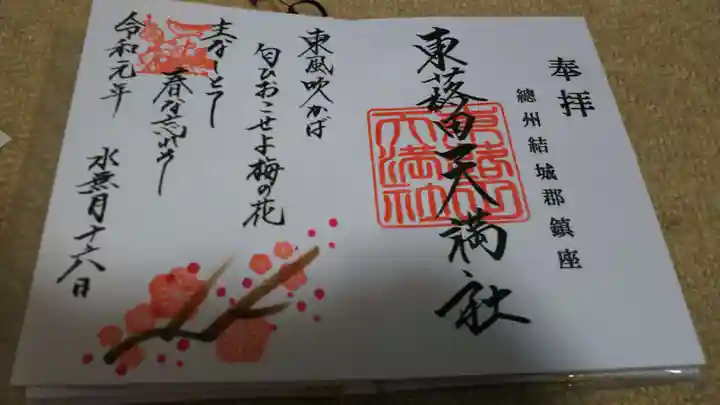 奉拝
總州結城郡鎮座
東蕗田天満社
東風吹かば
匂ひおこせよ梅の花
主なしとて
春な忘れそ
令和元年
水無月十六日